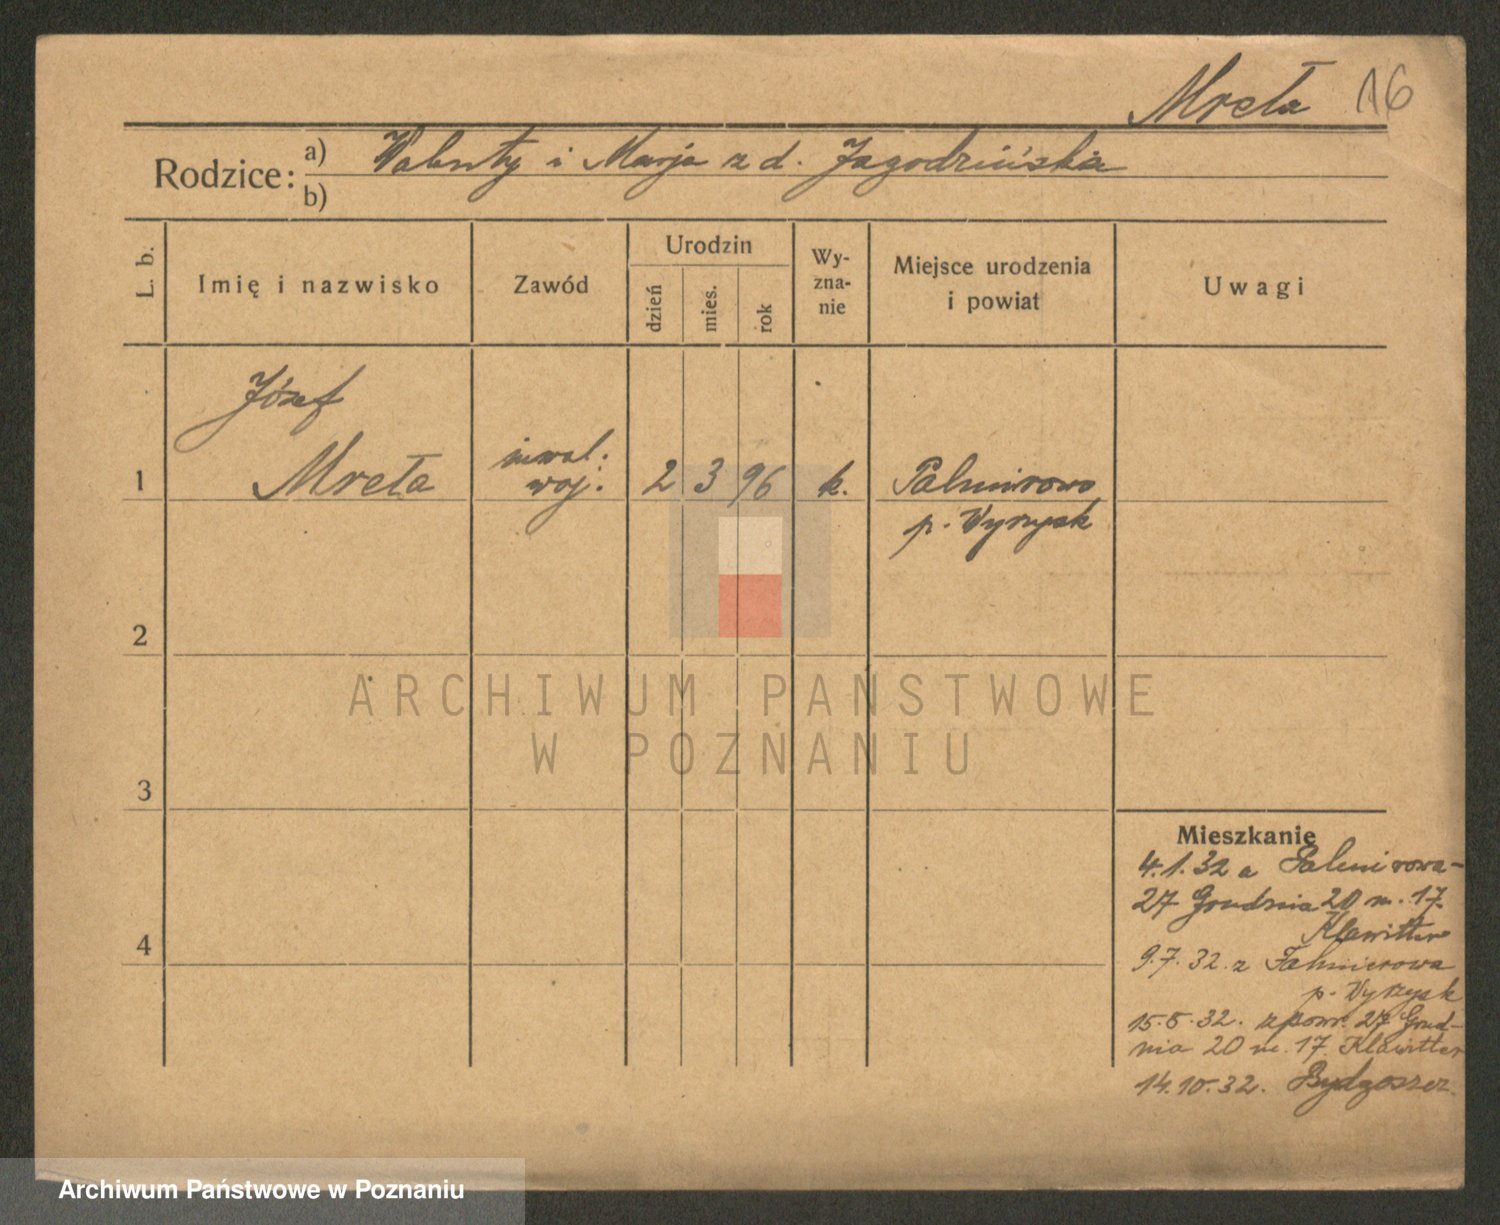 Mreła 16
Rodzice: a) Walenty i Marja z d. Jagodzińska
b)
L. b.
Imię i nazwisko
Zawód
Urodzin
dzień
mies.
rok
Wy-
zna-
nie
Miejsce urodzenia
i powiat
Uwagi
Józef
1 Mreła
inwal.
woj.
2 3 96
k.
Palmirowo
p. Wyrzysk
2
3
4
Mieszkanie
4.1.32 a Palmirowa-
27 Grudnia 20 m. 17.
Klawitter
9.7.32. z Palmierowa
p. Wyrzysk
15.8.32. z pow. 27 Grud-
nia 20 m. 17 Klawitter
14.10.32. Bydgoszcz.
ARCHIWUM PAŃSTWOWE
W POZNANIU
Archiwum Państwowe w Poznaniu